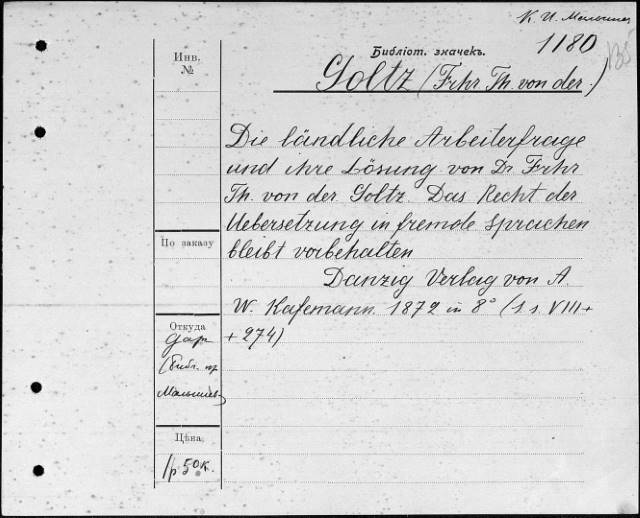 К. И. Малышев
1180
135
Библіот. значекъ.
Инв.
№
Goltz (Frhr Th. von der.)
Die ländliche Arbeiterfrage
und ihre Lösung von Dr Frhr
Th. von der Goltz. Das Recht der
Uebersetzung in fremde Sprachen
По заказу
bleibt vorbehalten
Danzig Verlag von A.
W. Kafemann. 1872 in 8° (s.s. VIII+
Откуда
+274)
Дар
(Библ. пр
Малышев
Цѣна.
1р 50к.